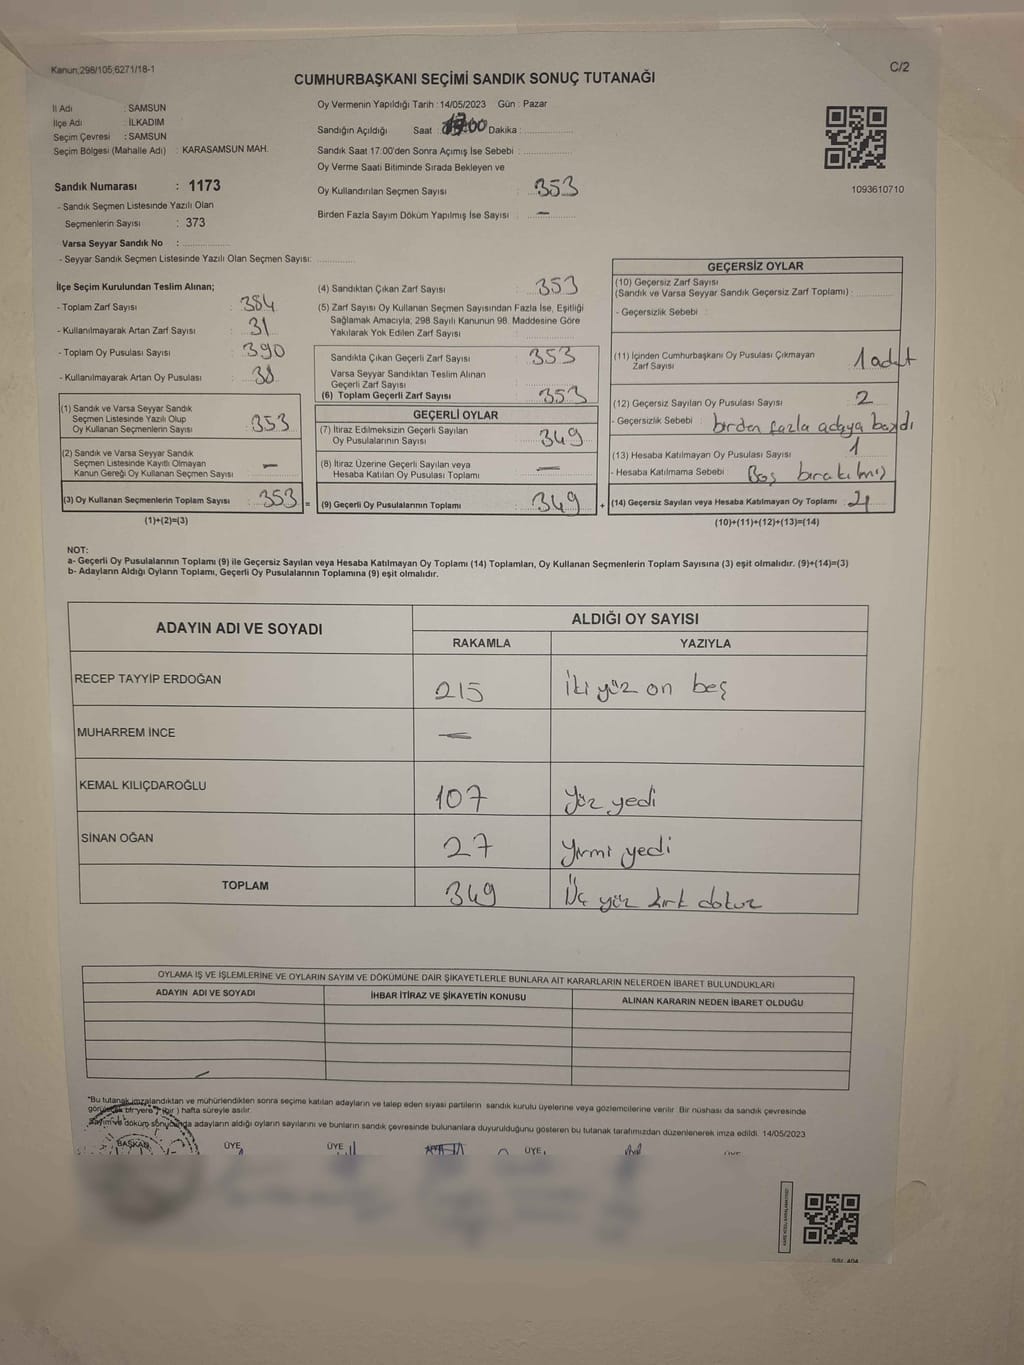 Kanun;298/105,6271/18-1
C/2
CUMHURBAŞKANI SEÇİMİ SANDIK SONUÇ TUTANAĞI
İl Adı : SAMSUN
İlçe Adı : İLKADIM
Seçim Çevresi : SAMSUN
Seçim Bölgesi (Mahalle Adı) : KARASAMSUN MAH.
Sandık Numarası : 1173
- Sandık Seçmen Listesinde Yazılı Olan
Seçmenlerin Sayısı : 373
Varsa Seyyar Sandık No :
- Seyyar Sandık Seçmen Listesinde Yazılı Olan Seçmen Sayısı:
Oy Vermenin Yapıldığı Tarih : 14/05/2023 Gün : Pazar
Sandığın Açıldığı Saat : 00 Dakika :
Sandık Saat 17:00'den Sonra Açımış İse Sebebi :
Oy Verme Saati Bitiminde Sırada Bekleyen ve
Oy Kullandırılan Seçmen Sayısı : 353
Birden Fazla Sayım Döküm Yapılmış İse Sayısı : —
1093610710
İlçe Seçim Kurulundan Teslim Alınan;
- Toplam Zarf Sayısı : 384
- Kullanılmayarak Artan Zarf Sayısı : 31
- Toplam Oy Pusulası Sayısı : 390
- Kullanılmayarak Artan Oy Pusulası : 38
(1) Sandık ve Varsa Seyyar Sandık
Seçmen Listesinde Yazılı Olup
Oy Kullanan Seçmenlerin Sayısı : 353
(2) Sandık ve Varsa Seyyar Sandık
Seçmen Listesinde Kayıtlı Olmayan
Kanun Gereği Oy Kullanan Seçmen Sayısı : —
(3) Oy Kullanan Seçmenlerin Toplam Sayısı : 353 =
(1)+(2)=(3)
(4) Sandıktan Çıkan Zarf Sayısı : 353
(5) Zarf Sayısı Oy Kullanan Seçmen Sayısından Fazla İse, Eşitliği
Sağlamak Amacıyla; 298 Sayılı Kanunun 98. Maddesine Göre
Yakılarak Yok Edilen Zarf Sayısı :
Sandıkta Çıkan Geçerli Zarf Sayısı : 353
Varsa Seyyar Sandıktan Teslim Alınan
Geçerli Zarf Sayısı :
(6) Toplam Geçerli Zarf Sayısı : 353
GEÇERLİ OYLAR
(7) İtiraz Edilmeksizin Geçerli Sayılan
Oy Pusulalarının Sayısı : 349
(8) İtiraz Üzerine Geçerli Sayılan veya
Hesaba Katılan Oy Pusulası Toplamı : —
(9) Geçerli Oy Pusulalarının Toplamı : 349 +
GEÇERSİZ OYLAR
(10) Geçersiz Zarf Sayısı
(Sandık ve Varsa Seyyar Sandık Geçersiz Zarf Toplamı) :
- Geçersizlik Sebebi :
(11) İçinden Cumhurbaşkanı Oy Pusulası Çıkmayan
Zarf Sayısı : 1 adet
(12) Geçersiz Sayılan Oy Pusulası Sayısı : 2
- Geçersizlik Sebebi : birden fazla adaya bastı
(13) Hesaba Katılmayan Oy Pusulası Sayısı : 1
- Hesaba Katılmama Sebebi : Boş bırakılmış
(14) Geçersiz Sayılan veya Hesaba Katılmayan Oy Toplamı :
(10)+(11)+(12)+(13)=(14)
NOT:
a- Geçerli Oy Pusulalarının Toplamı (9) ile Geçersiz Sayılan veya Hesaba Katılmayan Oy Toplamı (14) Toplamları, Oy Kullanan Seçmenlerin Toplam Sayısına (3) eşit olmalıdır. (9)+(14)=(3)
b- Adayların Aldığı Oyların Toplamı, Geçerli Oy Pusulalarının Toplamına (9) eşit olmalıdır.
ADAYIN ADI VE SOYADI ALDIĞI OY SAYISI
RAKAMLA YAZIYLA
RECEP TAYYİP ERDOĞAN 215 İki yüz on beş
MUHARREM İNCE —
KEMAL KILIÇDAROĞLU 107 Yüz yedi
SİNAN OĞAN 27 Yirmi yedi
TOPLAM 349 Üç yüz kırk dokuz
OYLAMA İŞ VE İŞLEMLERİNE VE OYLARIN SAYIM VE DÖKÜMÜNE DAİR ŞİKAYETLERLE BUNLARA AİT KARARLARIN NELERDEN İBARET BULUNDUKLARI
ADAYIN ADI VE SOYADI İHBAR İTİRAZ VE ŞİKAYETİN KONUSU ALINAN KARARIN NEDEN İBARET OLDUĞU
*Bu tutanak imzalandıktan ve mühürlendikten sonra seçime katılan adayların ve talep eden siyasi partilerin sandık kurulu üyelerine veya gözlemcilerine verilir. Bir nüshası da sandık çevresinde
görülecek bir yere 7 (bir) hafta süreyle asılır.
Sayım ve döküm sonucunda adayların aldığı oyların sayılarını ve bunların sandık çevresinde bulunanlara duyurulduğunu gösteren bu tutanak tarafımızdan düzenlenerek imza edildi. 14/05/2023
BAŞKAN ÜYE ÜYE ÜYE